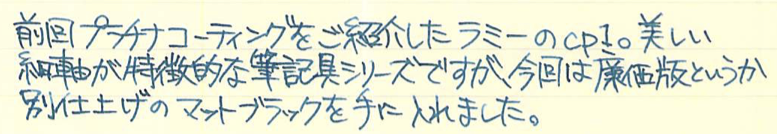 前回プラチナコーティングをご紹介したラミーのcp1。美しい
細軸が特徴的な筆記具シリーズですが、今回は廉価版というか
別仕上げのマットブラックを手に入れました。